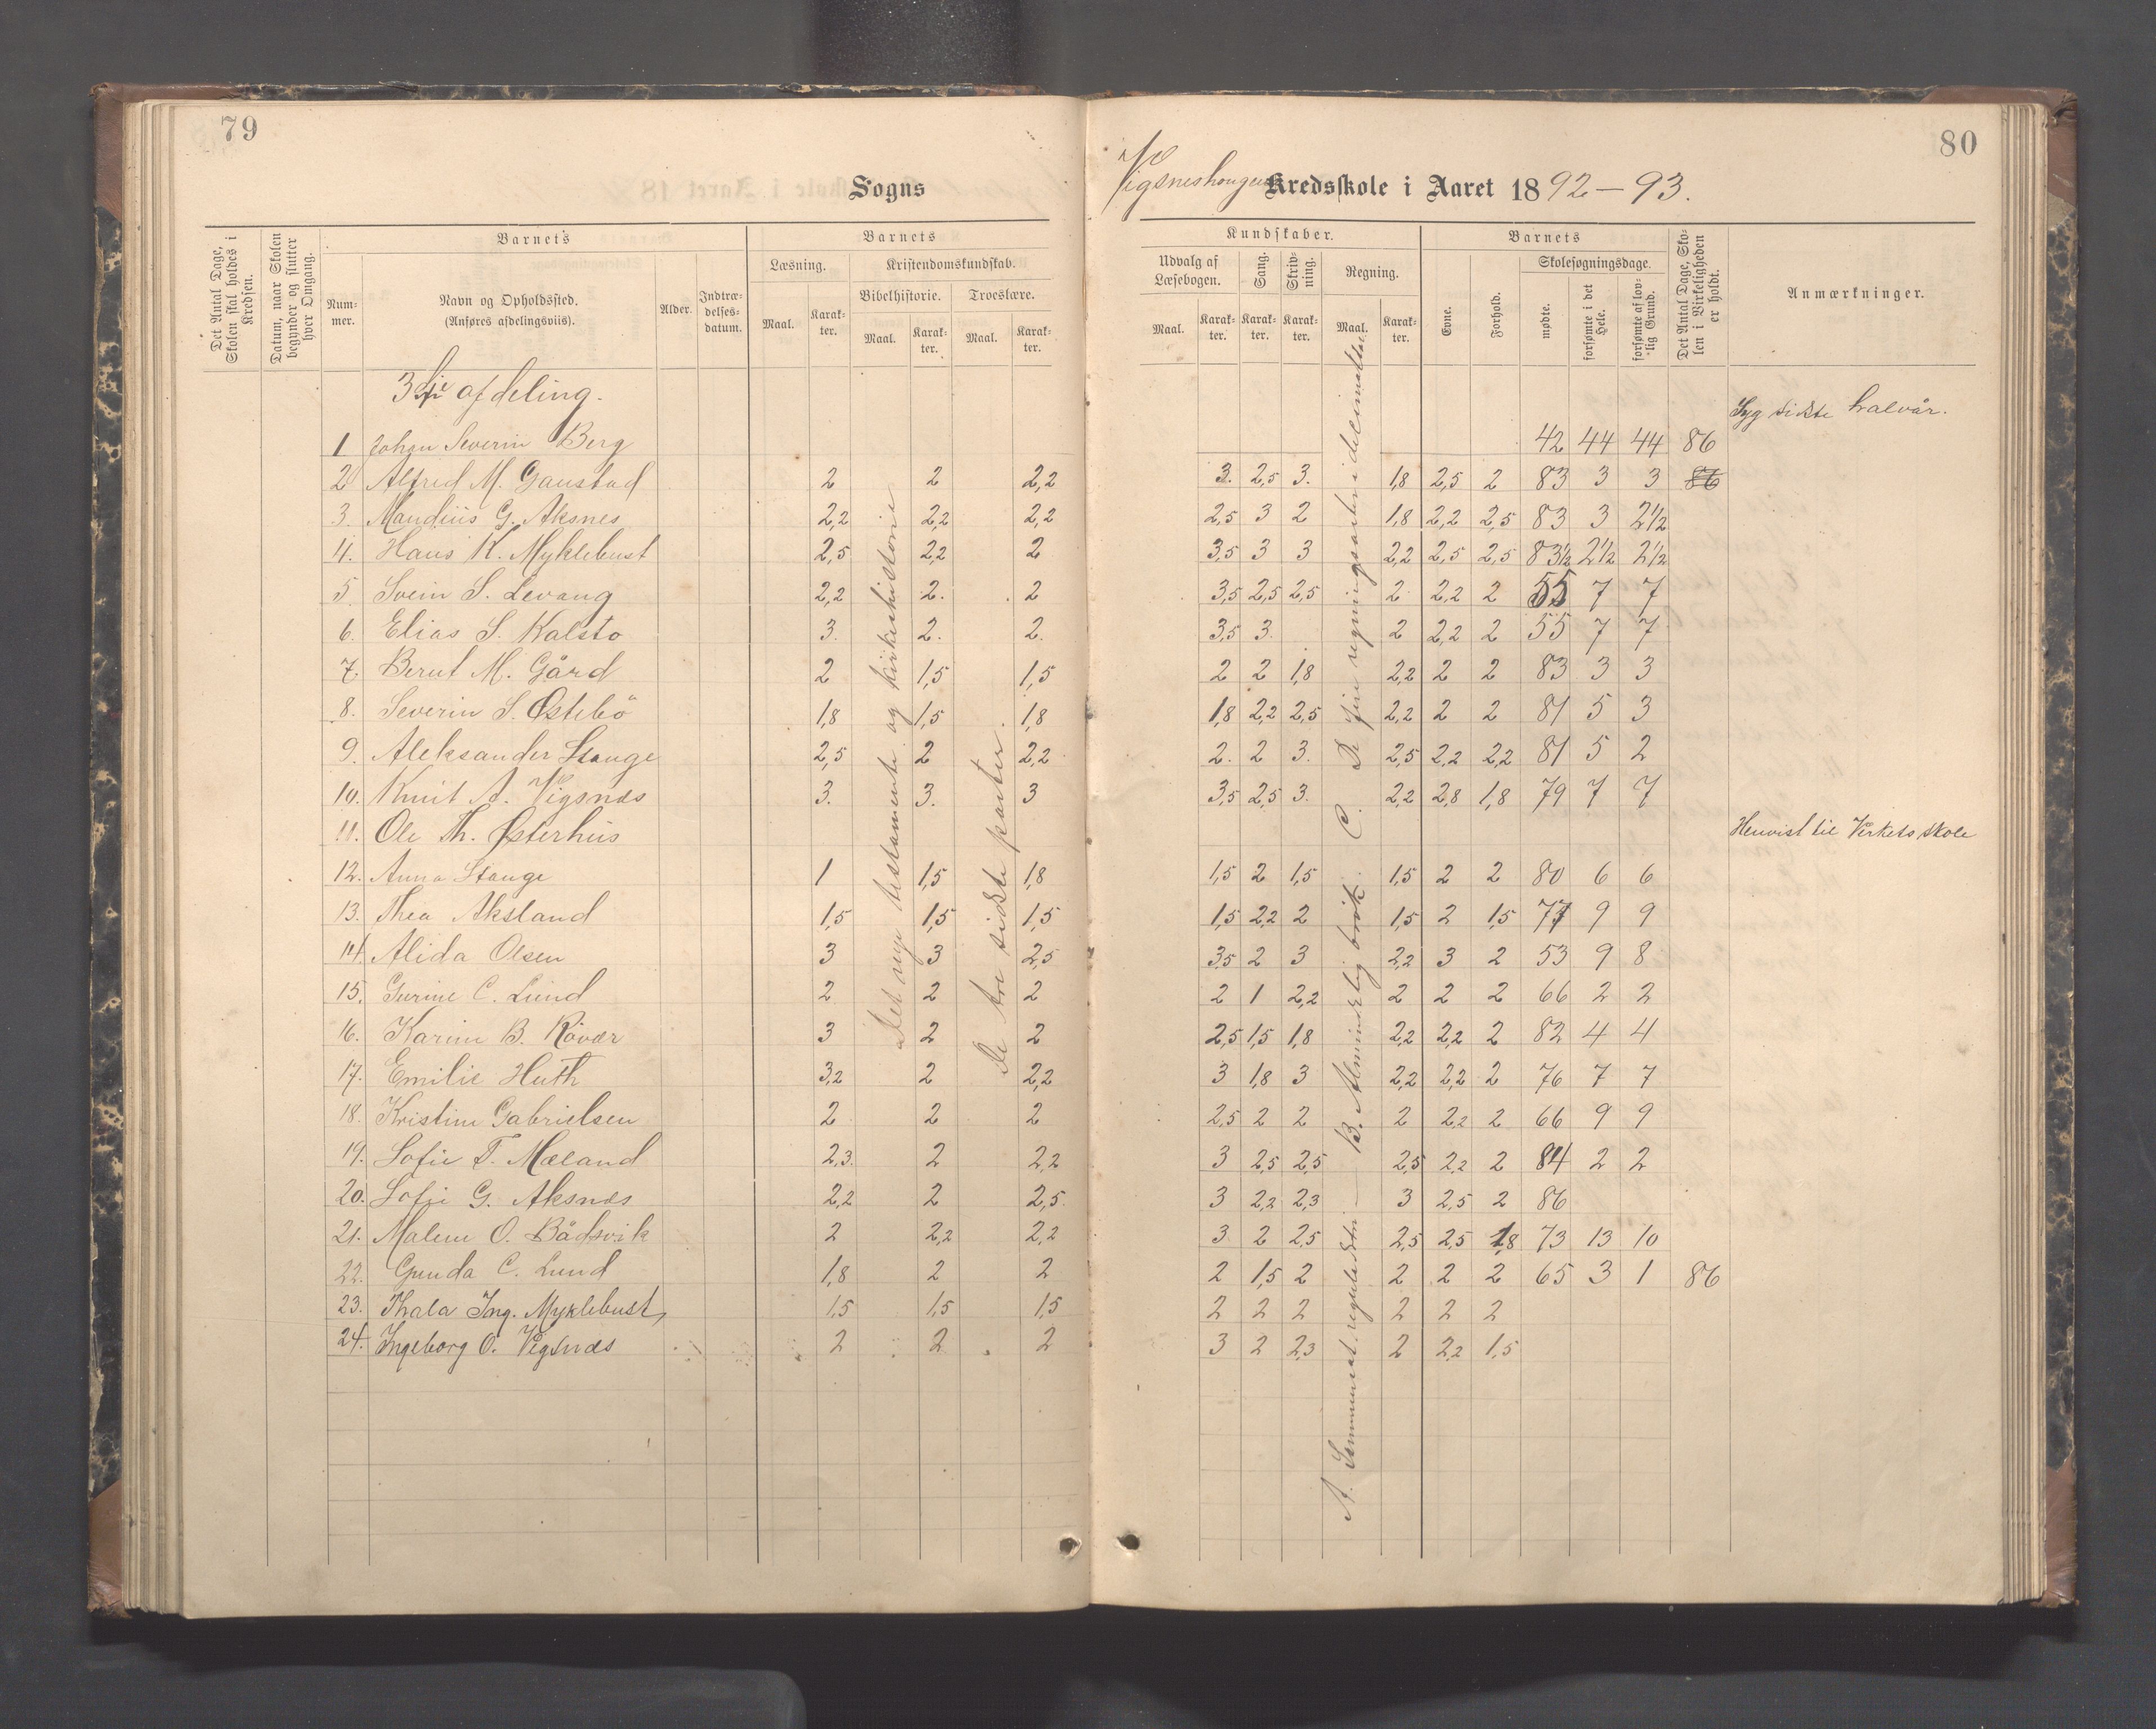 79
80
Sogns
Vigsneshougens Kredsskole i Aaret 1892–93.
Det Antal Dage, Skolen skal holdes i Kredsen.
Datum, naar Skolen begynder og slutter hver Omgang.
Barnets
Num-mer.
Navn og Opholdssted.
(Anføres afdelingsviis).
Alder.
Indtræ-delses-datum.
Barnets
Læsning.
Kristendomskundskab.
Bibelhistorie.
Troeslære.
Maal.
Karak-ter.
Maal.
Karak-ter.
Maal.
Karak-ter.
Kundskaber.
Udvalg af Læsebogen.
Sang.
Skriv-ning.
Regning.
Maal.
Karak-ter.
Karak-ter.
Karak-ter.
Maal.
Karak-ter.
Barnets
Evne.
Forhold.
Skolesøgningsdage.
mødte.
forsømte i det Hele.
forsømte af lov-lig Grund.
Det Antal Dage, Sko-len i Virkeligheden er holdt.
Anmærkninger.
3dje afdeling.
Syg sidste halvår.
1 Johan Severin Berg 42 44 44 86
2 Alfred M. Gaustad 2 2 2,2 3. 2,5 3. 1,8 2,5 2 83 3 3 86
3. Mandius G. Aksnes 2,2 2,2 2,2 2,5 3 2 1,8 2,2 2,5 83 3 2½
4. Hans K. Myklebust 2,5 2,2 2 3,5 3 3 2,2 2,5 2,5 83½ 2½ 2½
5. Svein S. Levang 2,2 2. 2 3,5 2,5 2,5 2 2,2 2 55 7 7
6. Elias S. Kalstø 3. 2. 2. 3,5 3. 2 2,2 2 55 7 7
7. Berut M. Gård 2 1,5 1,5 2 2 1,8 2,2 2 2 83 3 3
8. Severin S. Østebö 1,8 1,5 1,8 1,8 2,2 2,5 2,2 2 2 81 5 3
9. Aleksander Stange 2,5 2 2,2 2. 2 3. 2,5 2,2 2,2 81 5 2
10. Knut A. Vigsnæs 3. 3. 3 3,5 2,5 3. 2,2 2,8 1,8 79 7 7
11. Ole Th. Østerhus Henvist til Verkets skole
12. Anna Stange 1 1,5 1,8 1,5 2 1,5 1,5 2 2 80 6 6
13. Thea Aksland 1,5 1,5 1,5 1,5 2,2 2 1,5 2 1,5 77 9 9
14. Alida Olsen 3 3 2,5 3,5 2 3 2,2 3 2 53 9 8
15. Gurine C. Lund 2 2 2 2 1 2,2 2 2 2 66 2 2
16. Karine B. Rövær 3 2 2 2,5 1,5 1,8 2,2 2,2 2 82 4 4
17. Emilie Huth 3,2 2 2,2 3 1,8 3 2,2 2,2 2 76 7 7
18. Kristine Gabrielsen 2 2 2 2,5 2 2 2 2,2 2 66 9 9
19. Sofie T. Mæland 2,3. 2 2,2 3 2,5 2,5 2,5 2,2 2 84 2 2
20. Sofie G. Aksnæs 2,2 2 2,5 3 2,2 2,3 3 2,5 2 86
21. Malene O. Bådsvik 2 2,2 2,2 3 2 2,5 2,5 2,5 1,8 73 13 10
22. Gunda C. Lund 1,8 2 2 2 1,5 2 2 2 2 65 3 1 86
23. Thala Ing. Myklebust, 1,5 1,5 1,5 2 2 2 2 2 2
24. Ingeborg O. Vigsnæs 2 2 2 3 2 2,3 2 2,2 1,5
Det nye testamente og kirkehistorie
De tre sidste parter.
A. Sammensat reguladetri — B. Almindelig brök. C. De fire regningsarter i decimaltal